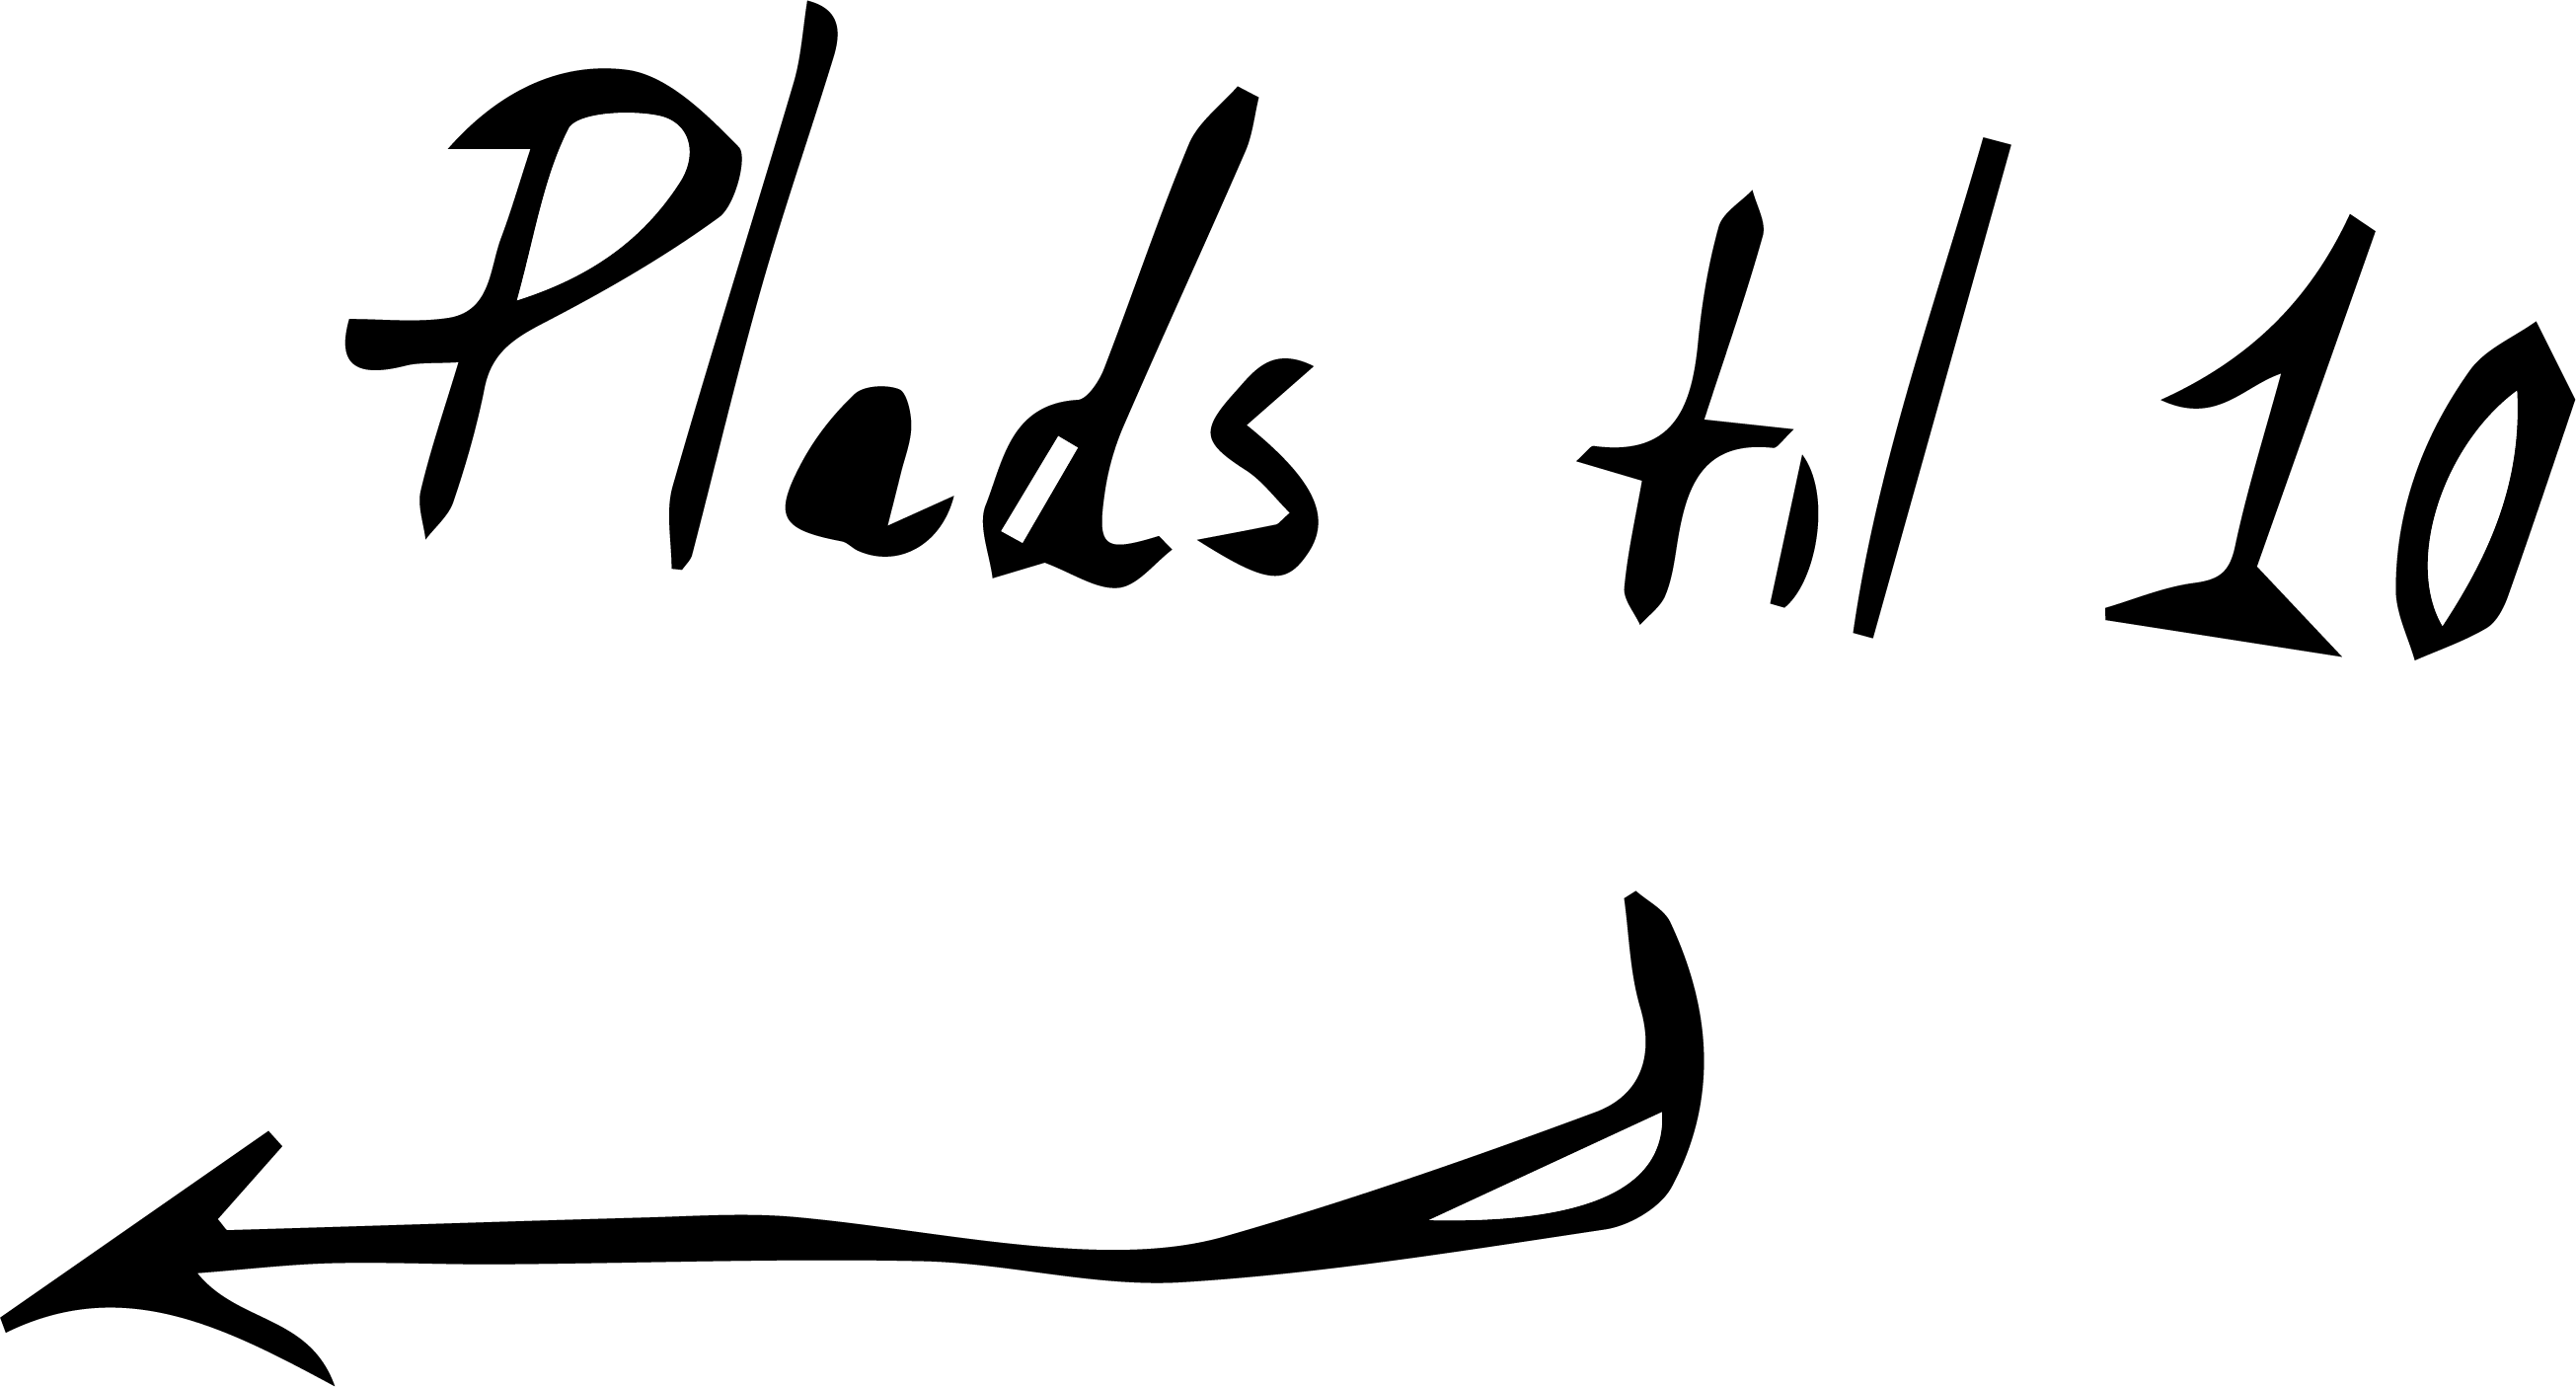 Plads til 10